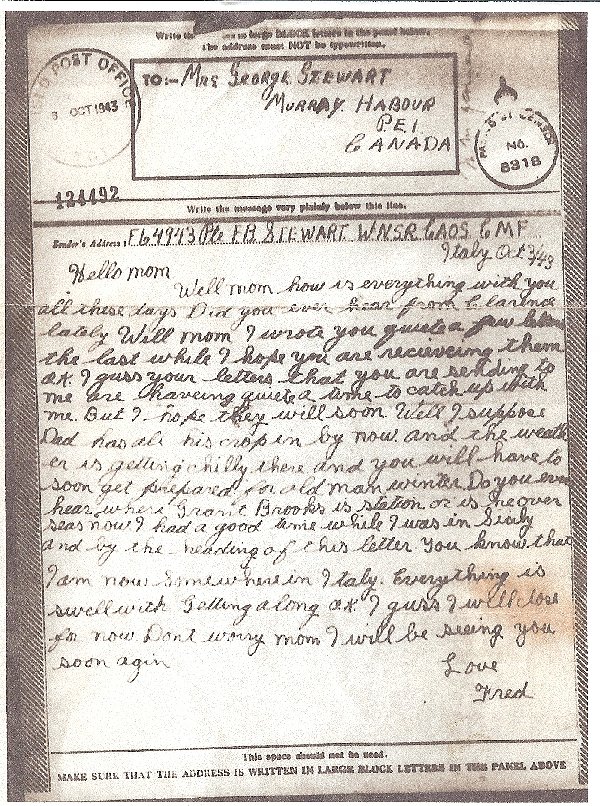 Write th in large BLOCK letters in the panel below.
The address must NOT be typewritten.
POST OFFICE
OCT 1943
TO:- Mrs GEORGE STEWART
MURRAY HABOUR
P.E.I
CANADA
NO.
8318
124492
Write the message very plainly below this line.
Sender's Address: F64943 Pte F.B STEWART WNSR CAOS CMF
Italy Oct 3/43
Hello mom
Well mom how is everything with you
all these days Did you ever hear from Clarence
lately Well mom I wrote you quiete a few letters
the last while I hope you are recieveing them
ok I guss your letters that you are sending to
me are haveing quiete a time to catch up with
me. But I hope they will soon Well I suppose
Dad has all his crop in by now and the weath
er is getting chilly there and you will have to
soon get prepared for old man winter. Do you ever
hear where Grant Brooks is station or is he over
seas now I had a good time while I was in Sicily
and by the heading of this letter you know that
I am now somewhere in Italy. Everything is
swell with Getting along ok I guss I will close
for now Dont worry mom I will be seeing you
soon agin
Love
Fred
This space should not be used.
MAKE SURE THAT THE ADDRESS IS WRITTEN IN LARGE BLOCK LETTERS IN THE PANEL ABOVE